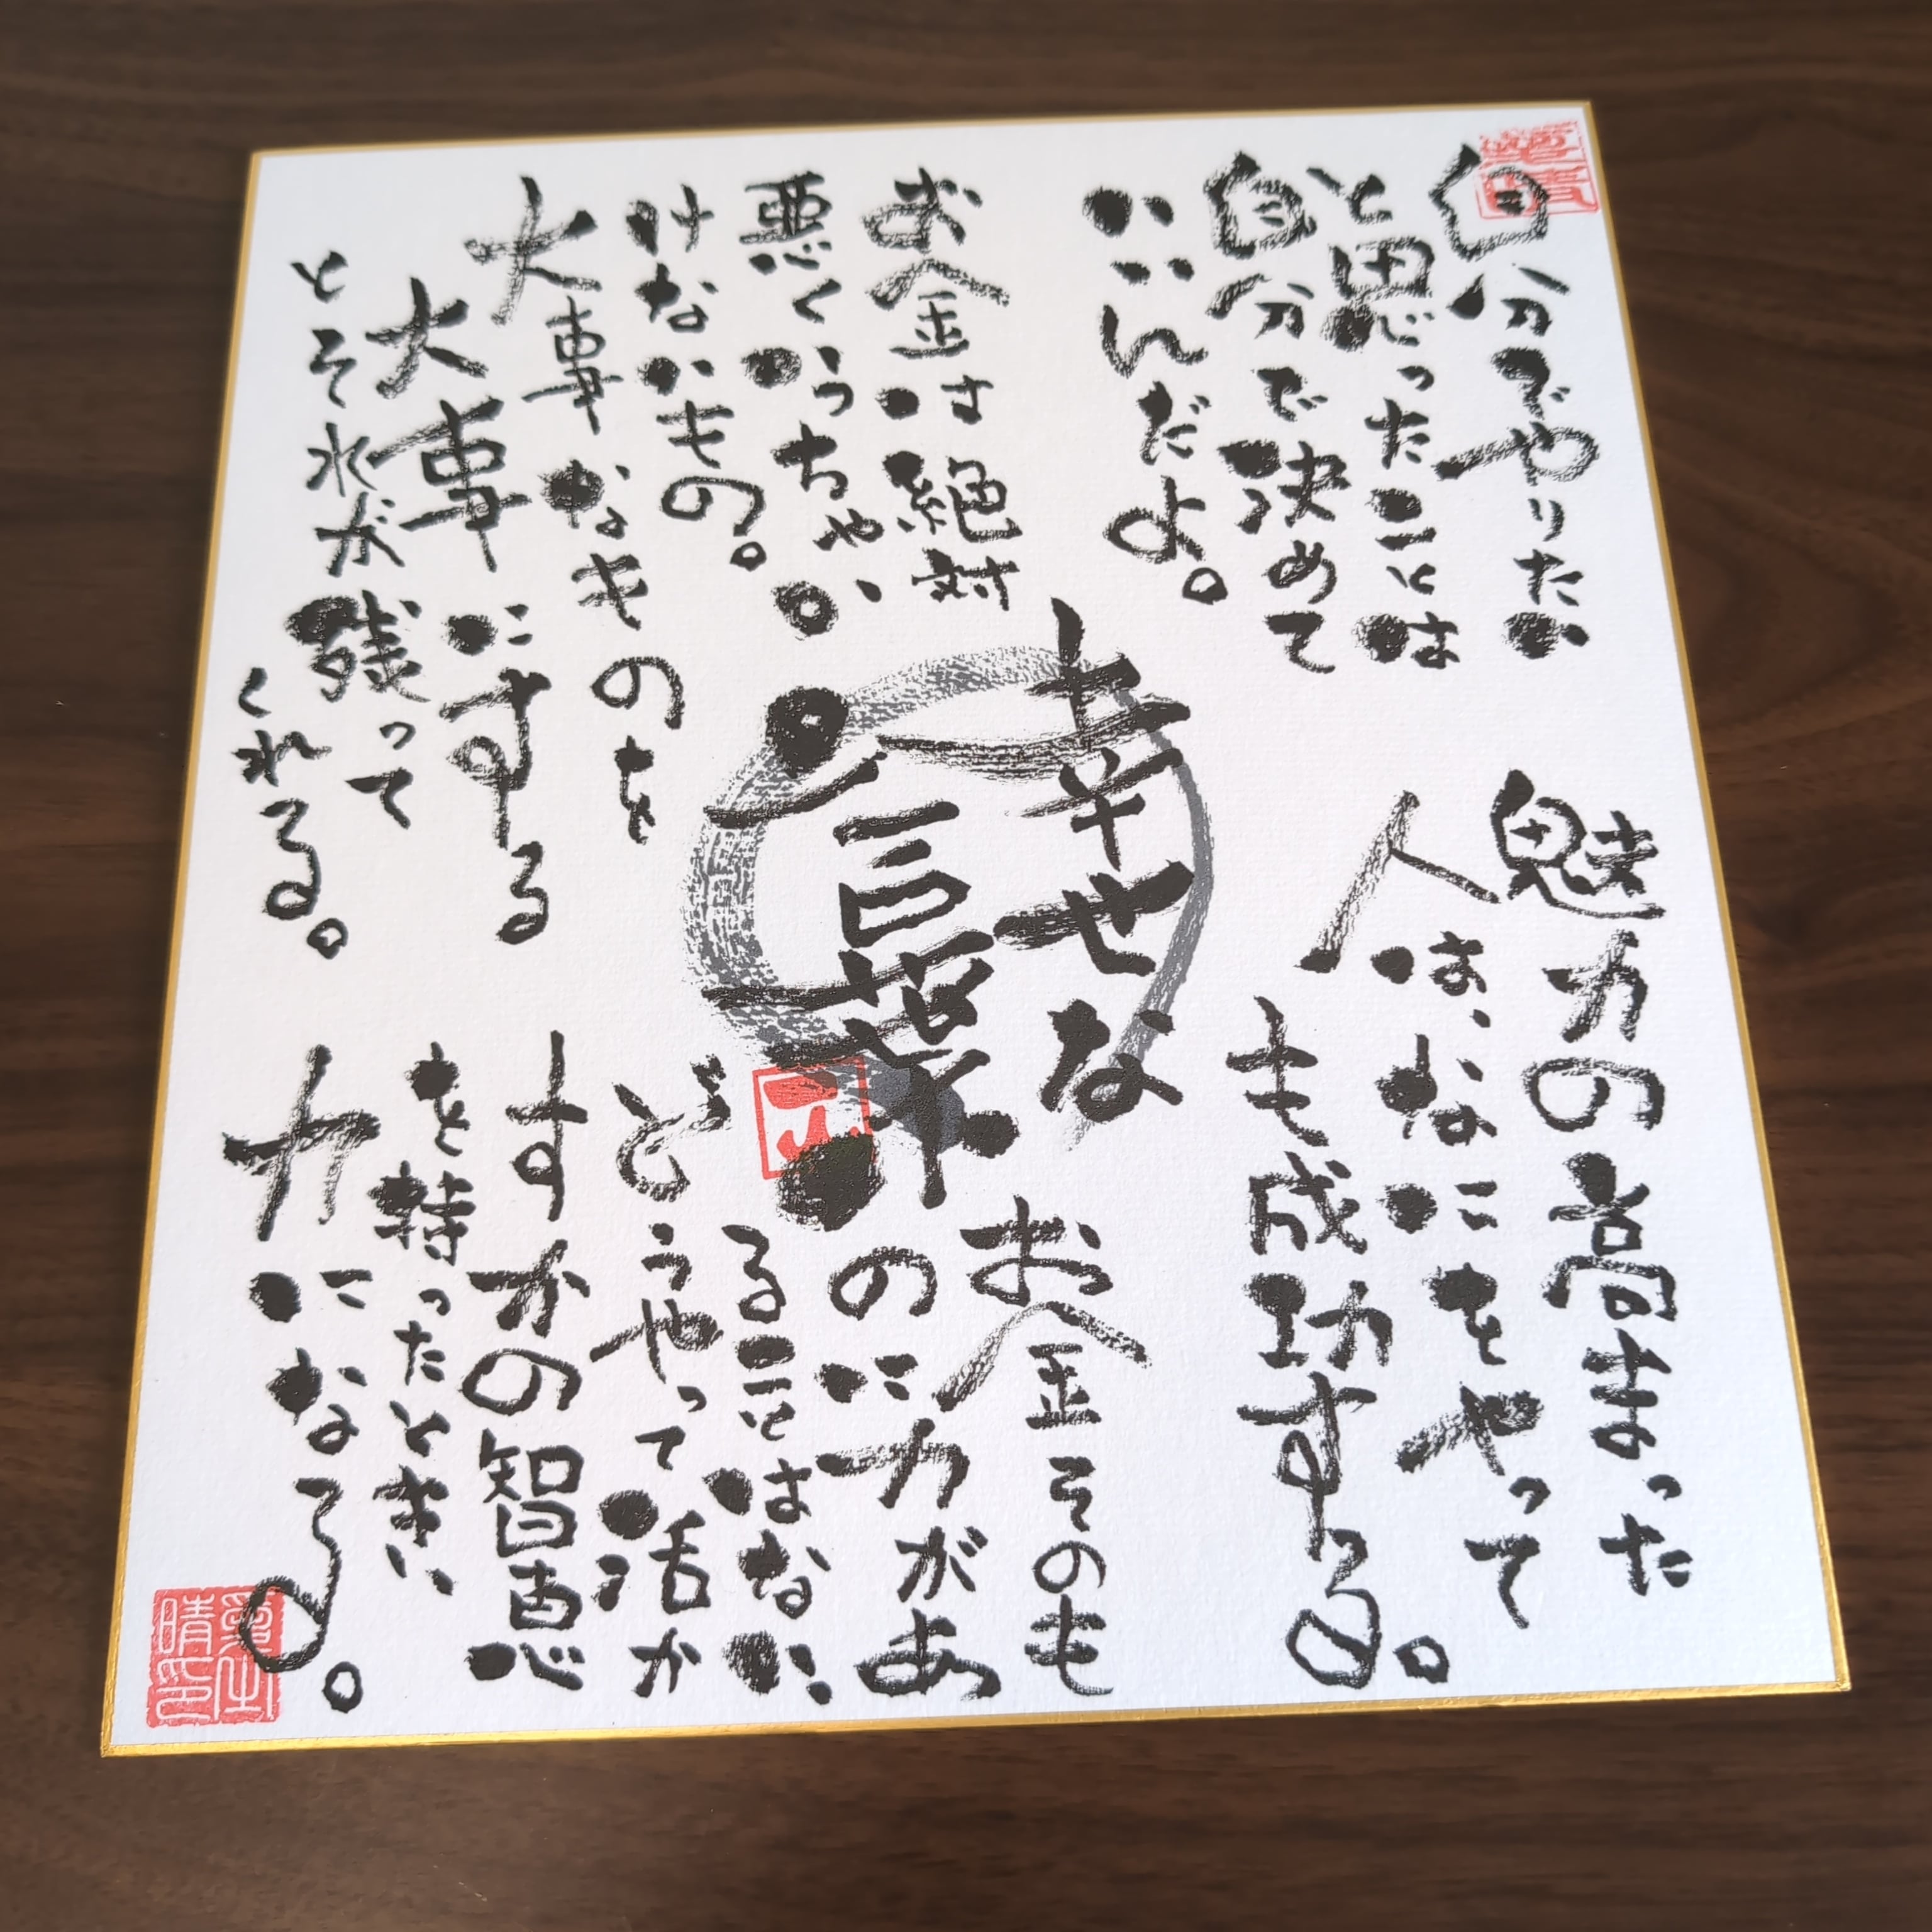 自分でやりたい
と思ったことは
自分で決めて
いいんだよ。
魅力の高まった
人は、なにをやって
も成功する。
幸せな
言葉
お金は絶対
悪くいっちゃい
けないもの。
大事なものを
大事にする
とそれが残って
くれる。
お金そのも
のに力があ
ることはない
どうやって活か
すかの智恵
を持ったときい
力になる。